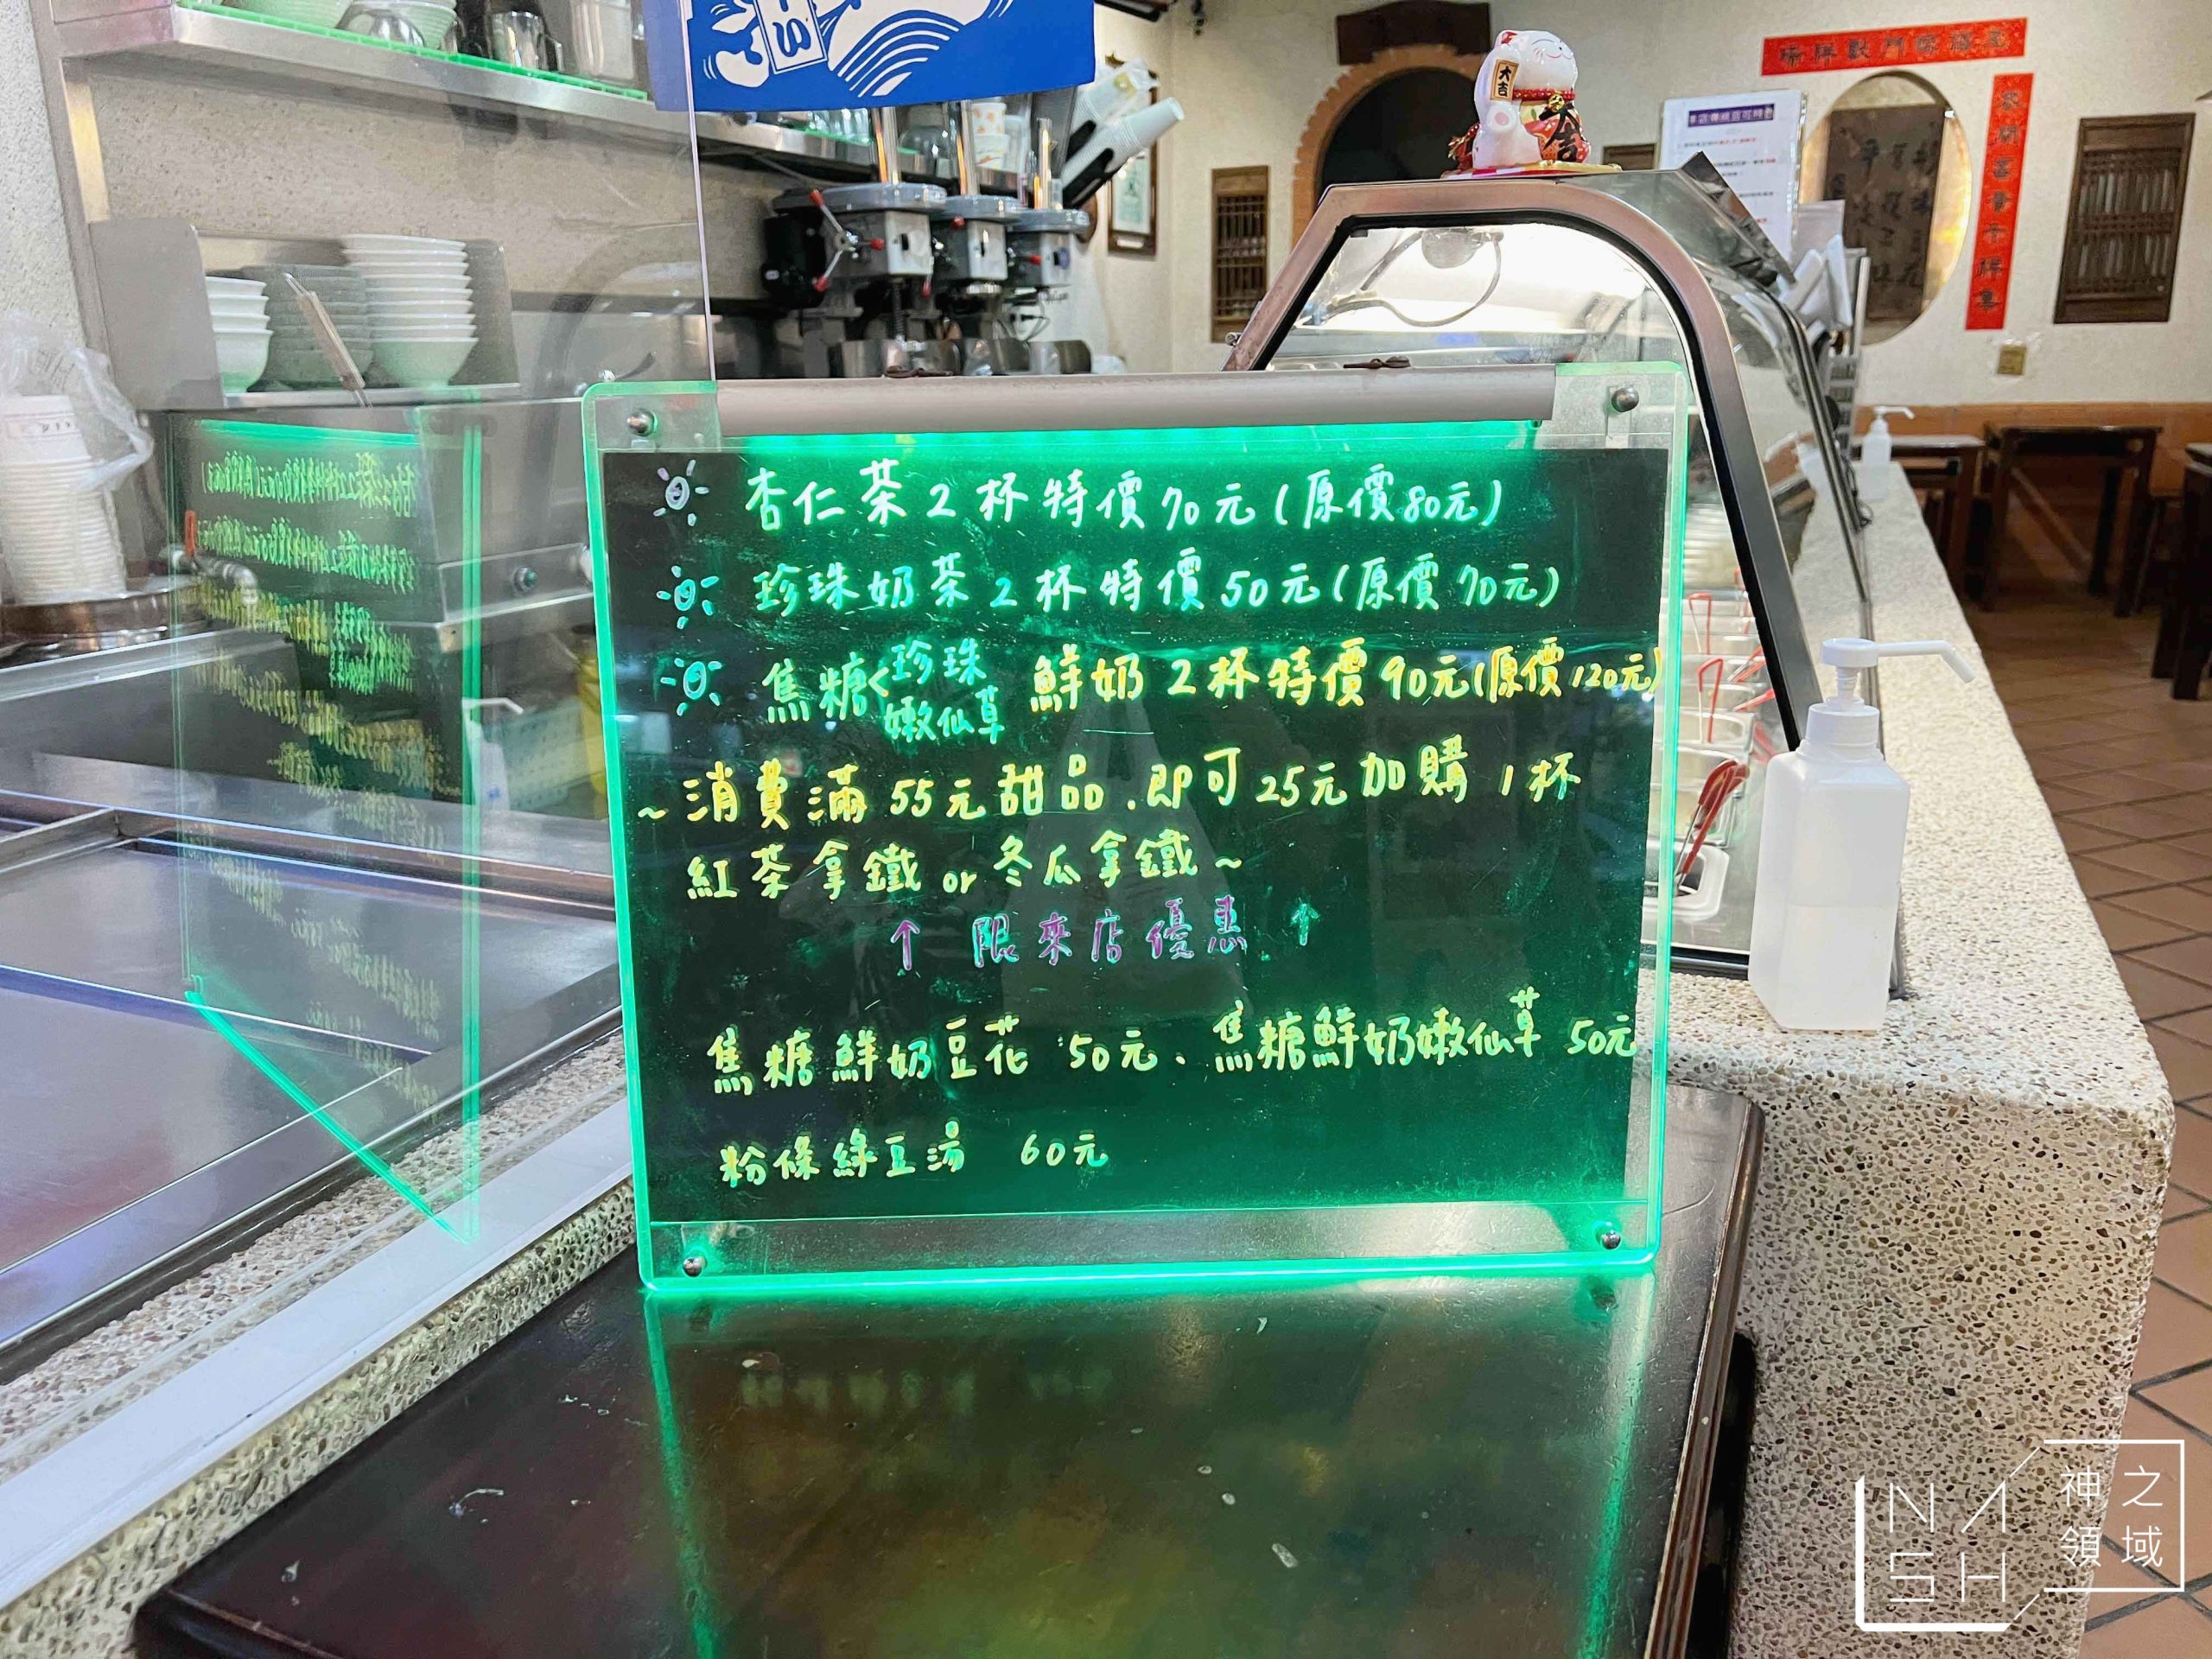 大吉
大吉
杏仁茶2杯特價70元(原價80元)
珍珠奶茶2杯特價50元(原價70元)
焦糖<珍珠 嫩仙草 鮮奶2杯特價90元(原價120元)
~消費滿55元甜品.即可25元加購1杯
紅茶拿鐵or冬瓜拿鐵~
↑ 限來店優惠 ↑
焦糖鮮奶豆花 50元、焦糖鮮奶嫩仙草 50元
粉條綠豆湯 60元
NASH
神之領域